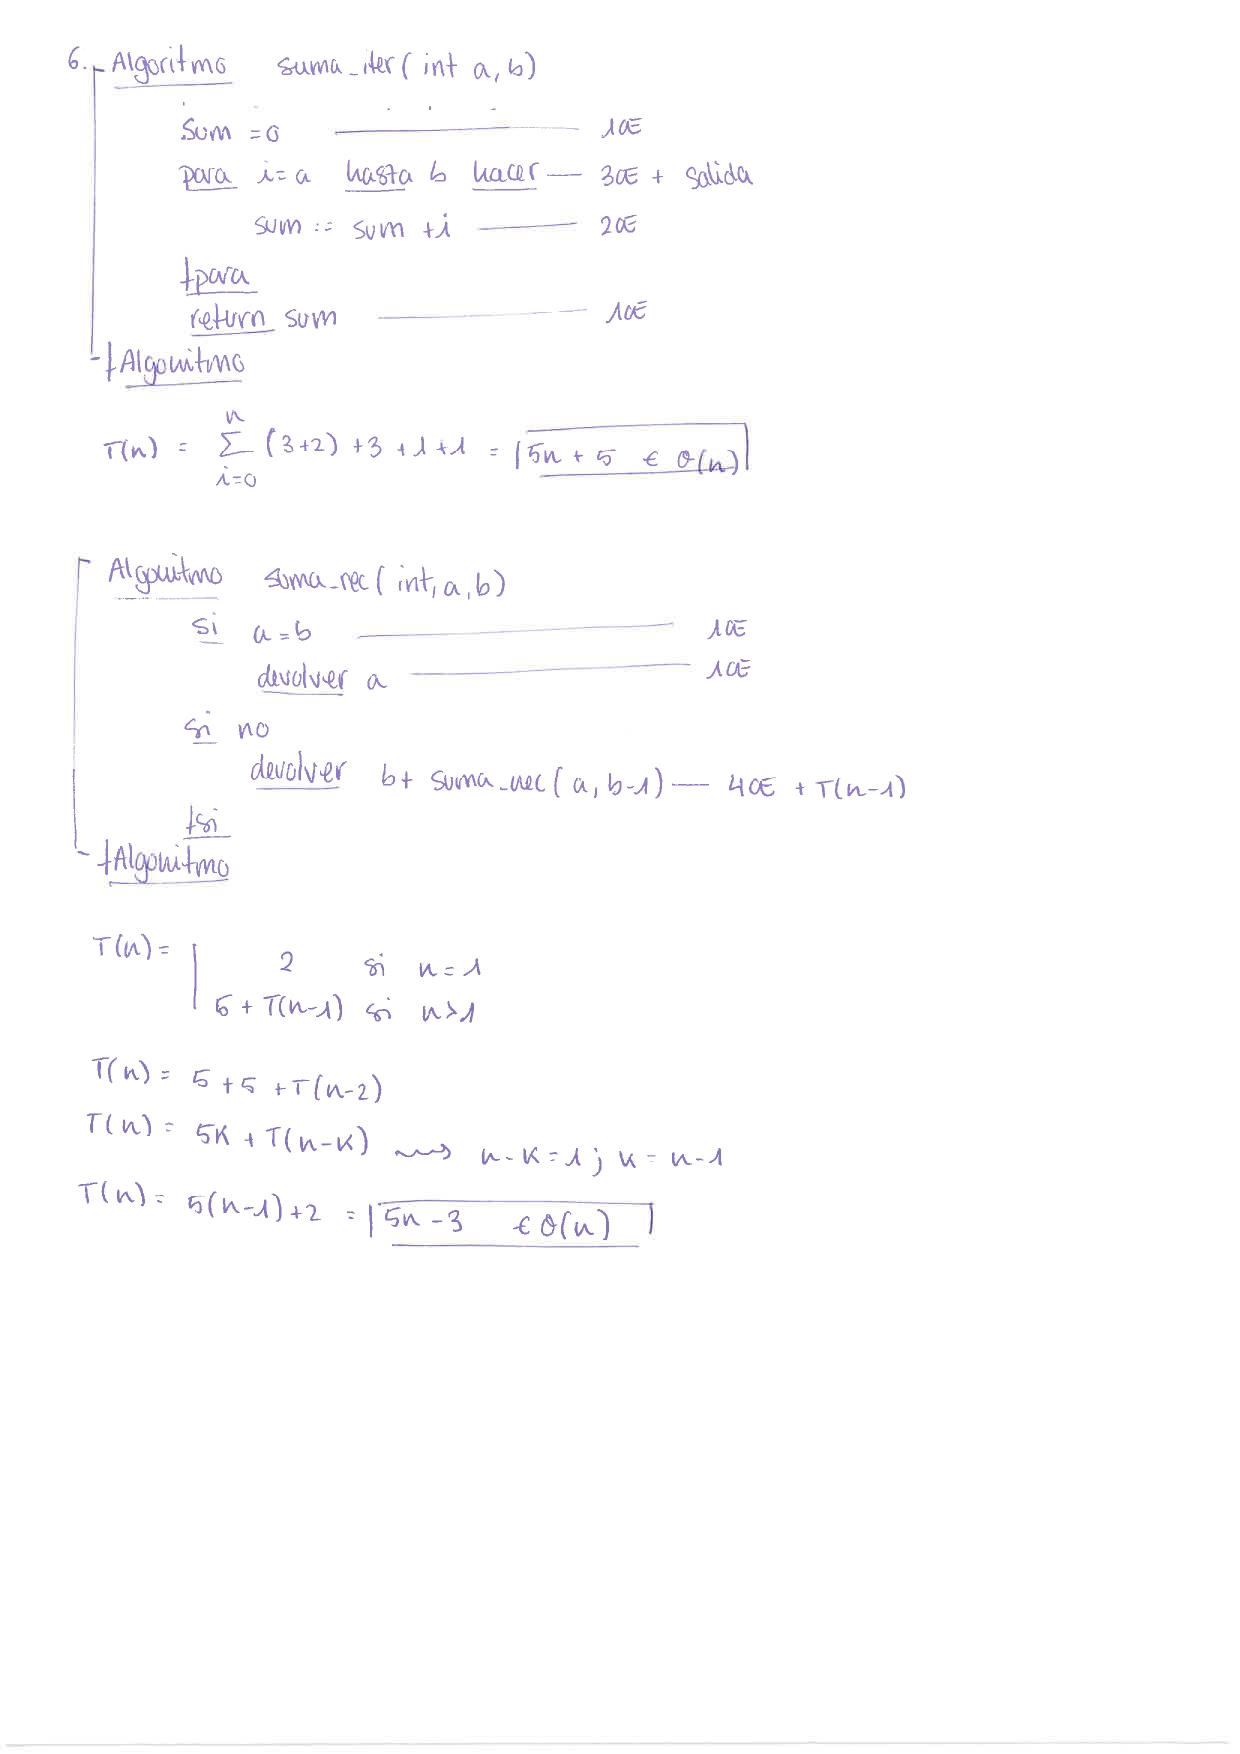 6.- Algoritmo suma_iter( int a, b)
sum = 0 1OE
para i = a hasta b hacer — 3OE + salida
sum := sum + i 2OE
fpara
return sum 1OE
- fAlgoritmo
T(n) = n Σ i=0 (3+2) + 3 + 1 + 1 = 5n + 5 ∈ θ(n)
Algoritmo suma_rec( int, a, b)
si a = b 1OE
devolver a 1OE
si no
devolver b + suma_rec( a, b-1) — 4OE + T(n-1)
fsi
- fAlgoritmo
T(n) = 2 si n = 1
5 + T(n-1) si n > 1
T(n) = 5 + 5 + T(n-2)
T(n) = 5K + T(n-K) ⟿ n - K = 1 ; K = n - 1
T(n) = 5(n-1) + 2 = 5n - 3 ∈ θ(n)